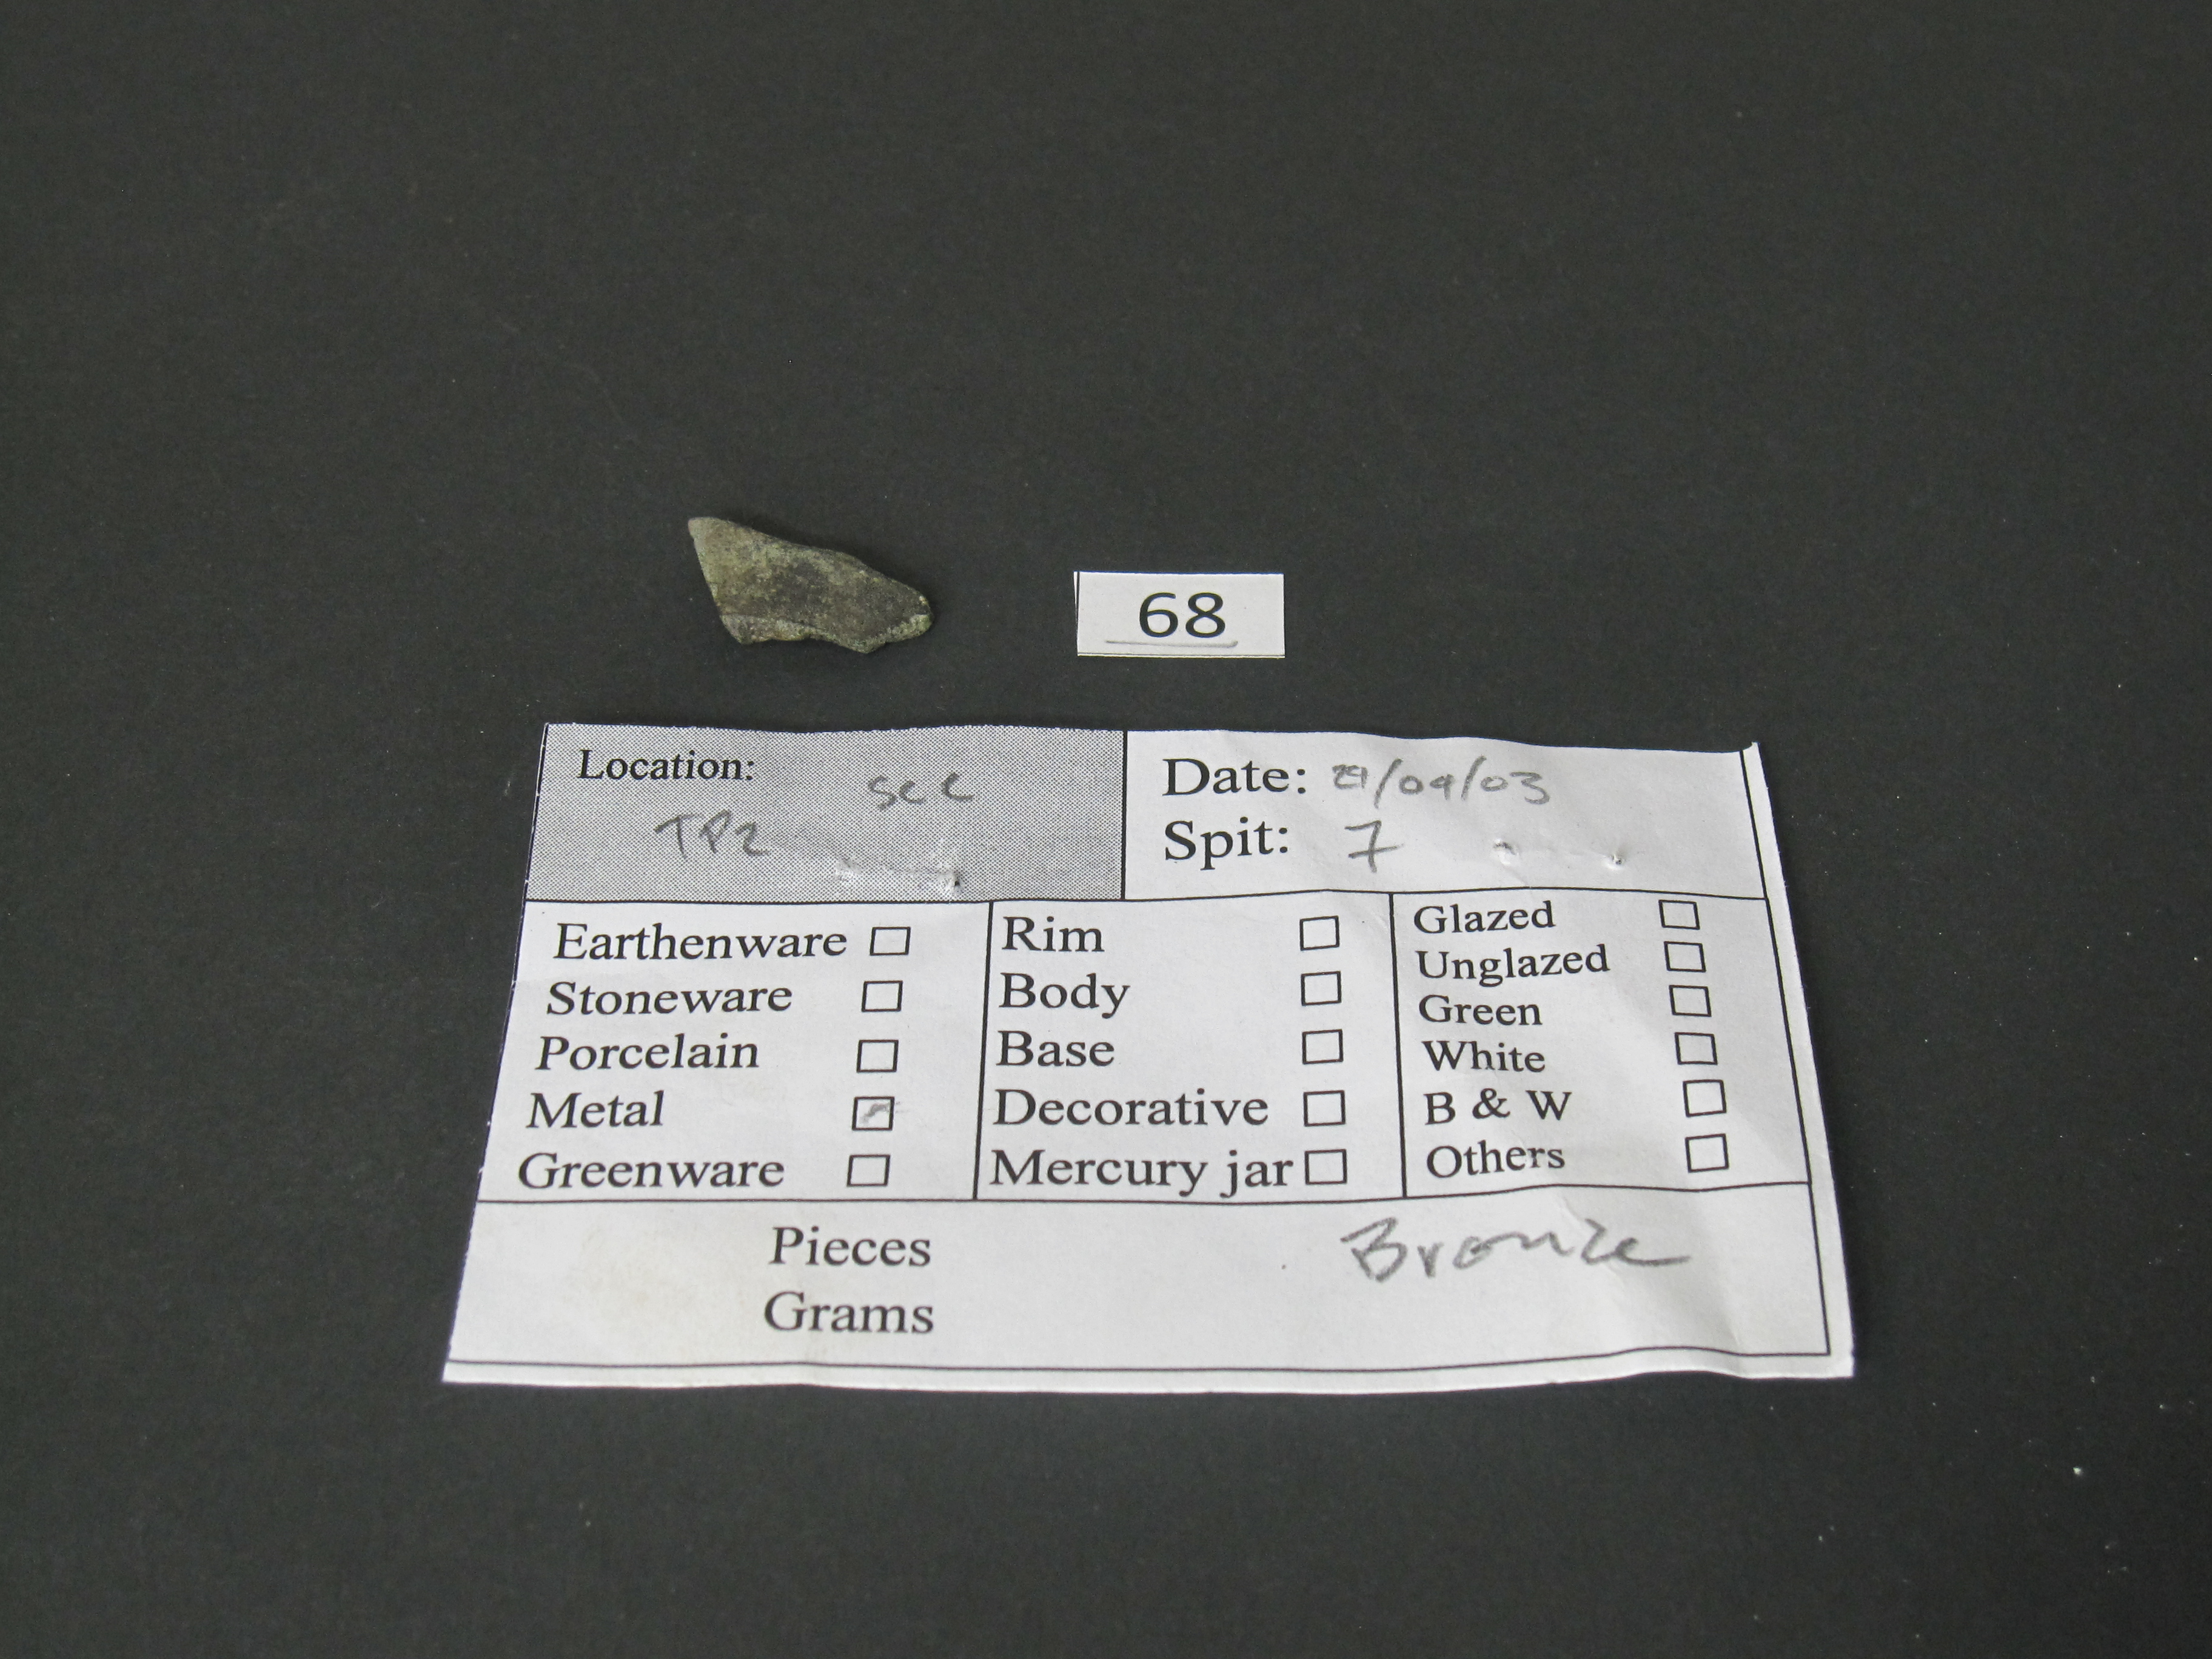 68
Location:
SCC
TP2
Date: /09/03
Spit: 7
Earthenware
Stoneware
Porcelain
Metal
Greenware
Rim
Body
Base
Decorative
Mercury jar
Glazed
Unglazed
Green
White
B & W
Others
Pieces
Grams
Bronze